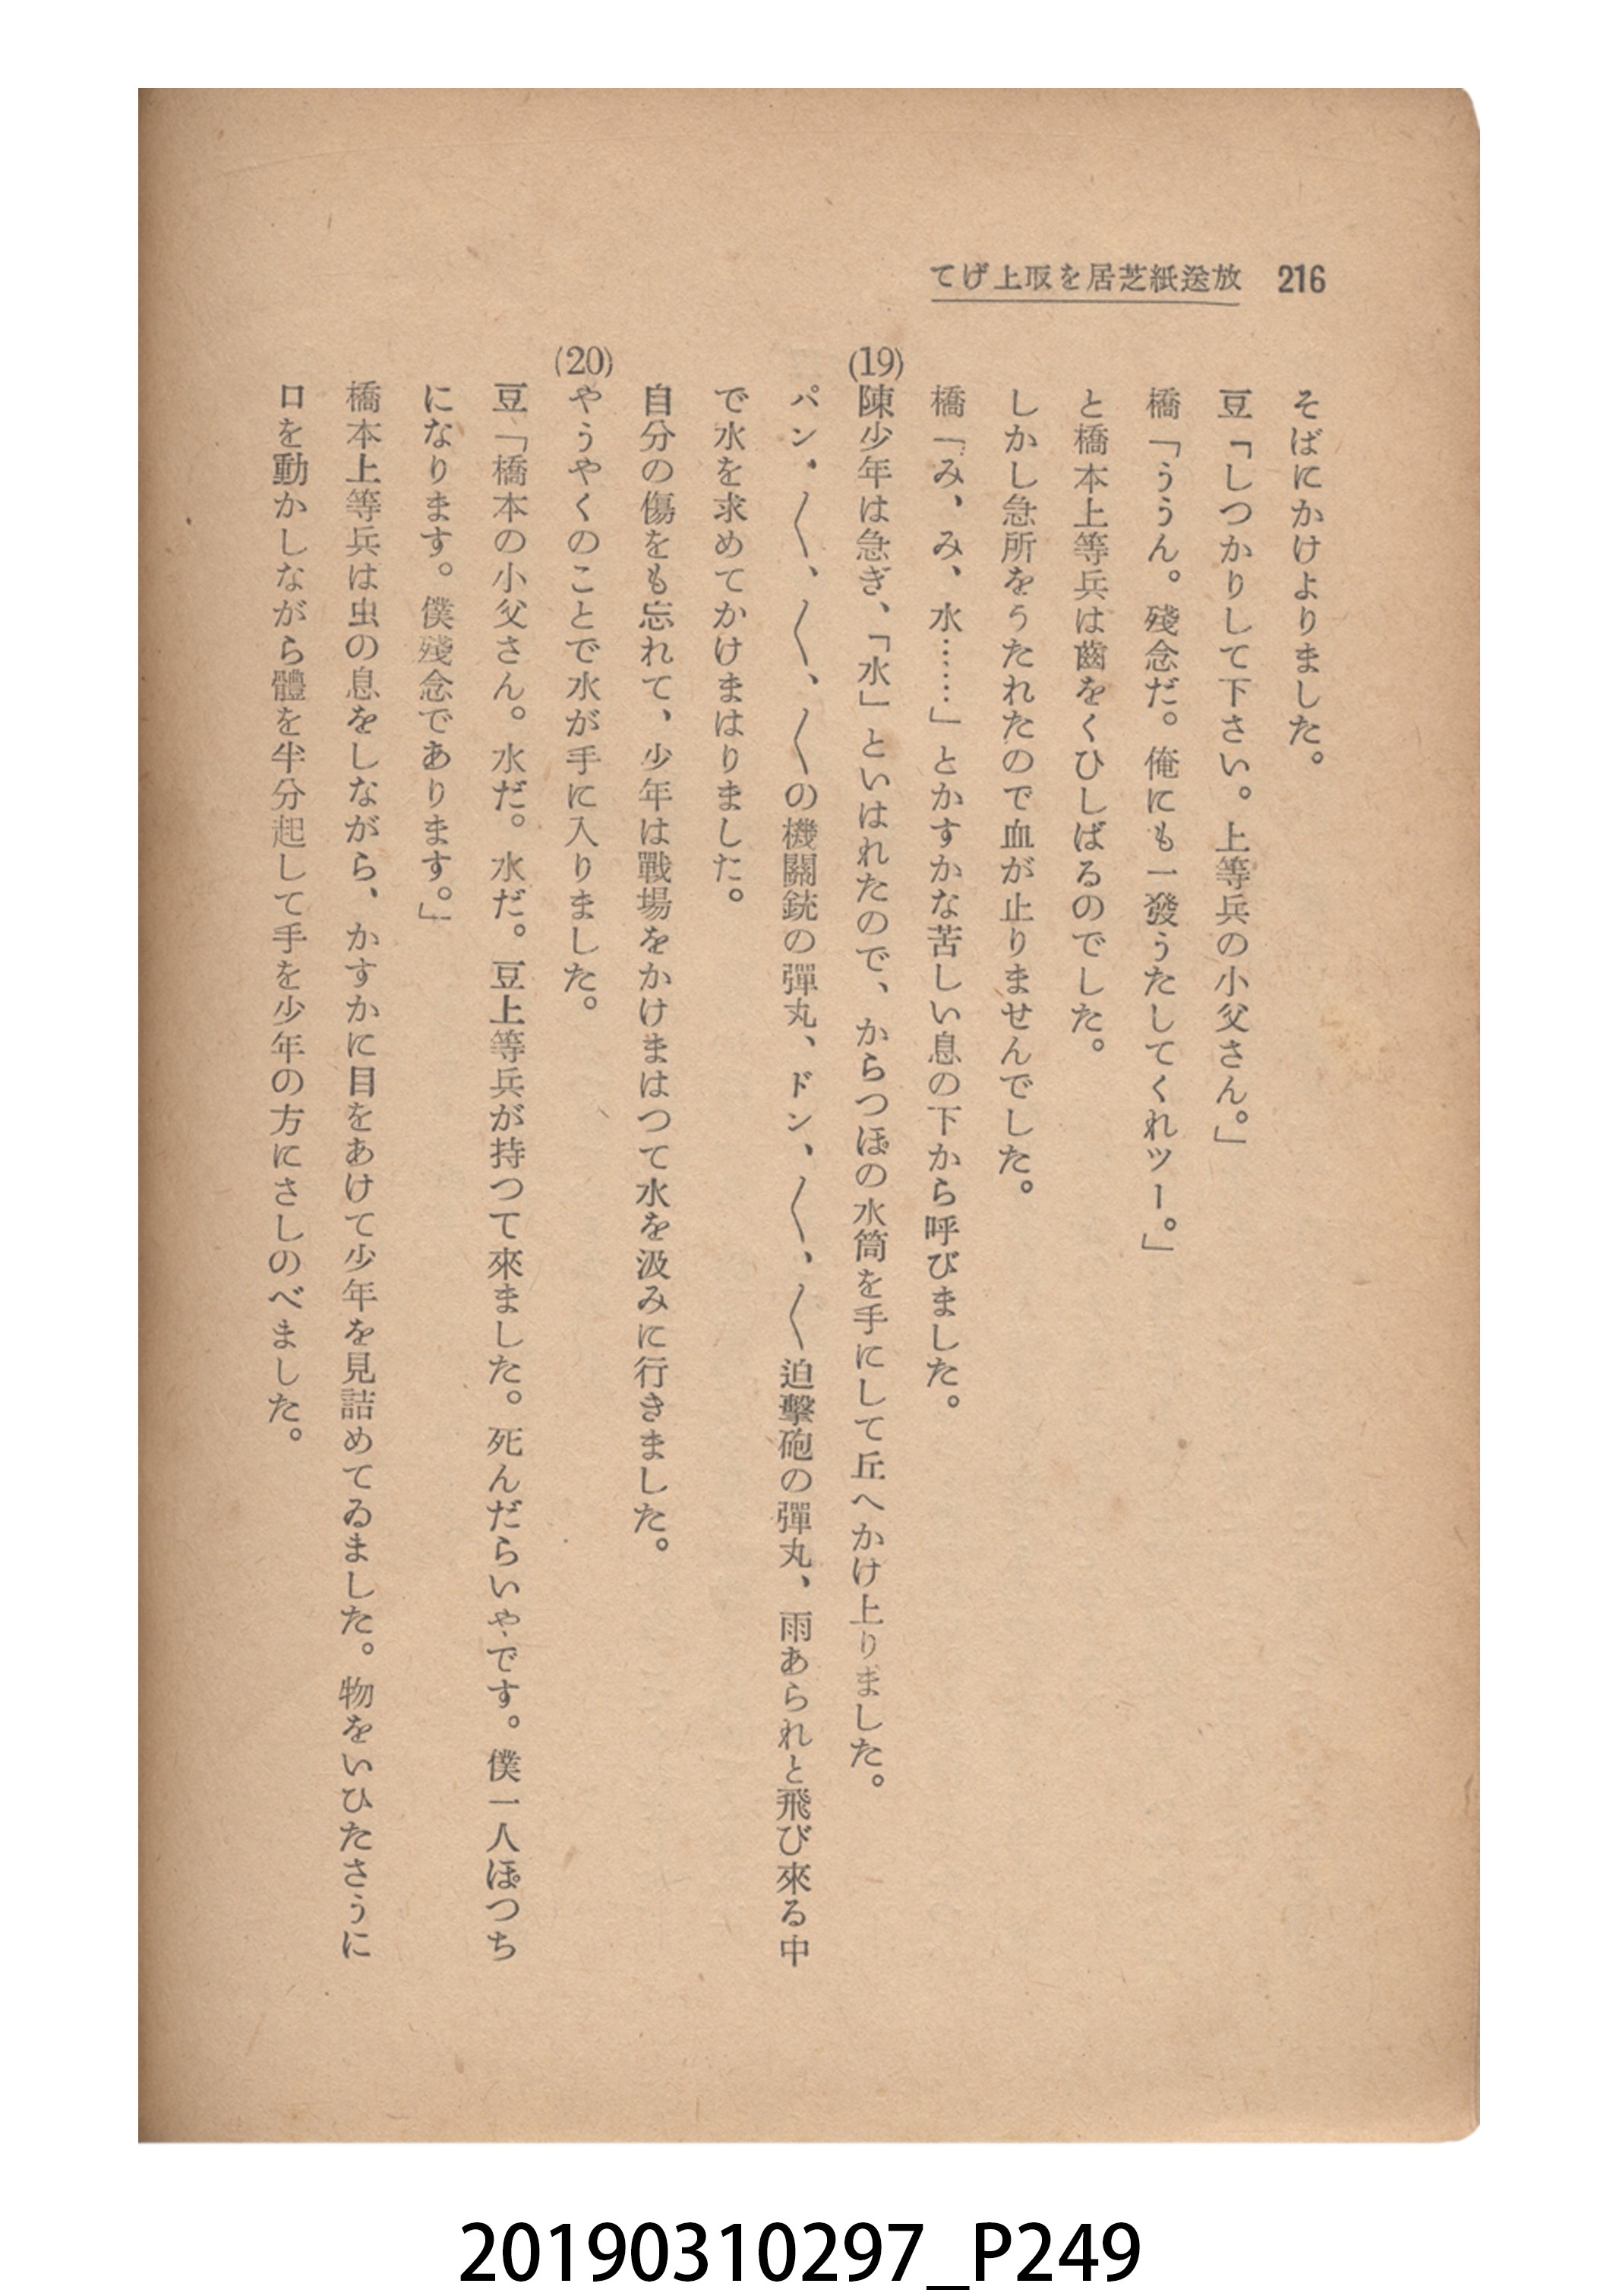 216
てげ上取を居芝紙送放
そばにかけよりました。
豆「しつかりして下さい。上等兵の小父さん。」
橋「ううん。殘念だ。俺にも一發うたしてくれツー。」
と橋本上等兵は齒をくひしばるのでした。
しかし急所をうたれたので血が止りませんでした。
橋「み、み、水……」とかすかな苦しい息の下から呼びました。
(19)陳少年は急ぎ、「水」といはれたので、からつぽの水筒を手にして丘へかけ上りました。
パン・〱、〱、〱の機關銃の彈丸、ドン、〱、〱迫擊砲の彈丸、雨あられと飛び來る中
で水を求めてかけまはりました。
自分の傷をも忘れて、少年は戰場をかけまはつて水を汲みに行きました。
(20)やうやくのことで水が手に入りました。
豆「橋本の小父さん。水だ。水だ。豆上等兵が持つて來ました。死んだらいやです。僕一人ぽつち
になります。僕殘念であります。」
橋本上等兵は虫の息をしながら、かすかに目をあけて少年を見詰めてゐました。物をいひたさうに
口を動かしながら體を半分起して手を少年の方にさしのべました。
20190310297_P249